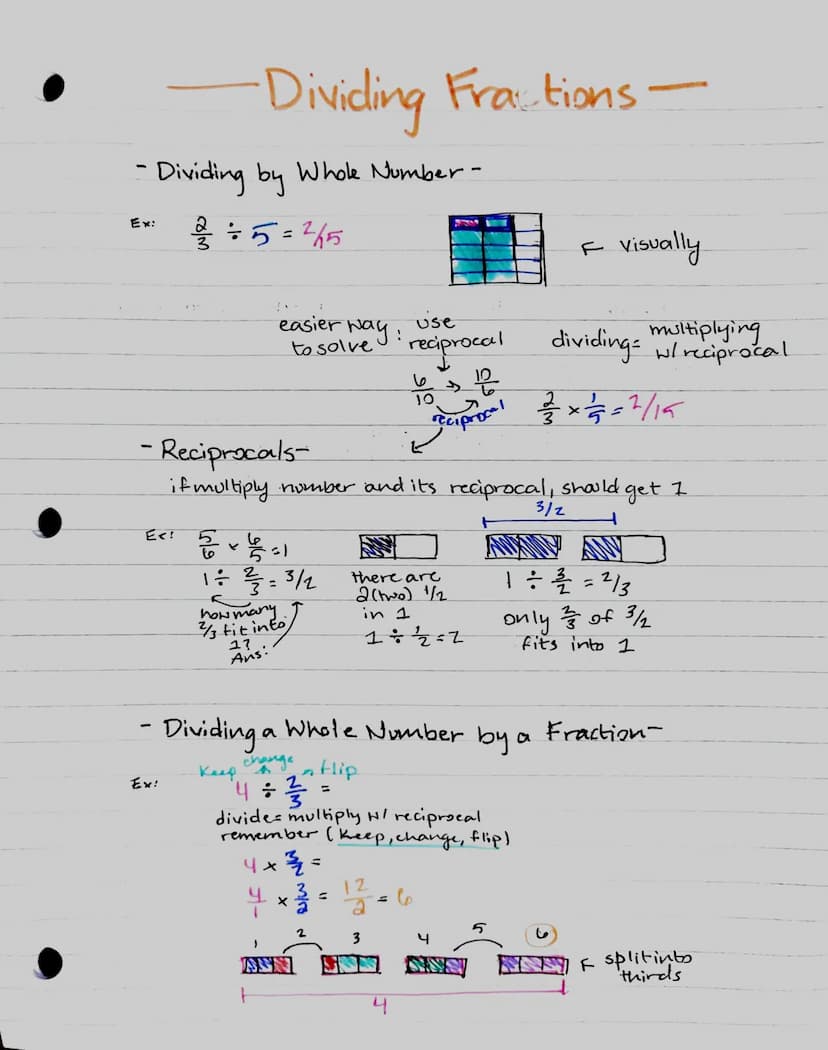 — Dividing Fractions —
- Dividing by Whole Number -
Ex: 2/3 ÷ 5 = 2/15
← visually
easier way to solve: use reciprocal
6/10 → 10/6
reciprocal
dividing = multiplying w/ reciprocal
2/3 × 1/5 = 2/15
- Reciprocals -
if multiply number and its reciprocal, should get 1
Ex: 5/6 × 6/5 = 1
1 ÷ 2/3 = 3/2
how many
2/3 fit into
1?
Ans:
there are
2(two) 1/2
in 1
1 ÷ 1/2 = 2
3/2
1 ÷ 3/2 = 2/3
only 2/3 of 3/2
fits into 1
- Dividing a Whole Number by a Fraction -
Keep change flip
Ex: 4 ÷ 2/3 =
divide = multiply w/ reciprocal
remember (keep, change, flip)
4 × 3/2 =
4/1 × 3/2 = 12/2 = 6
1 2 3 4 5 6
← split into
thirds
4